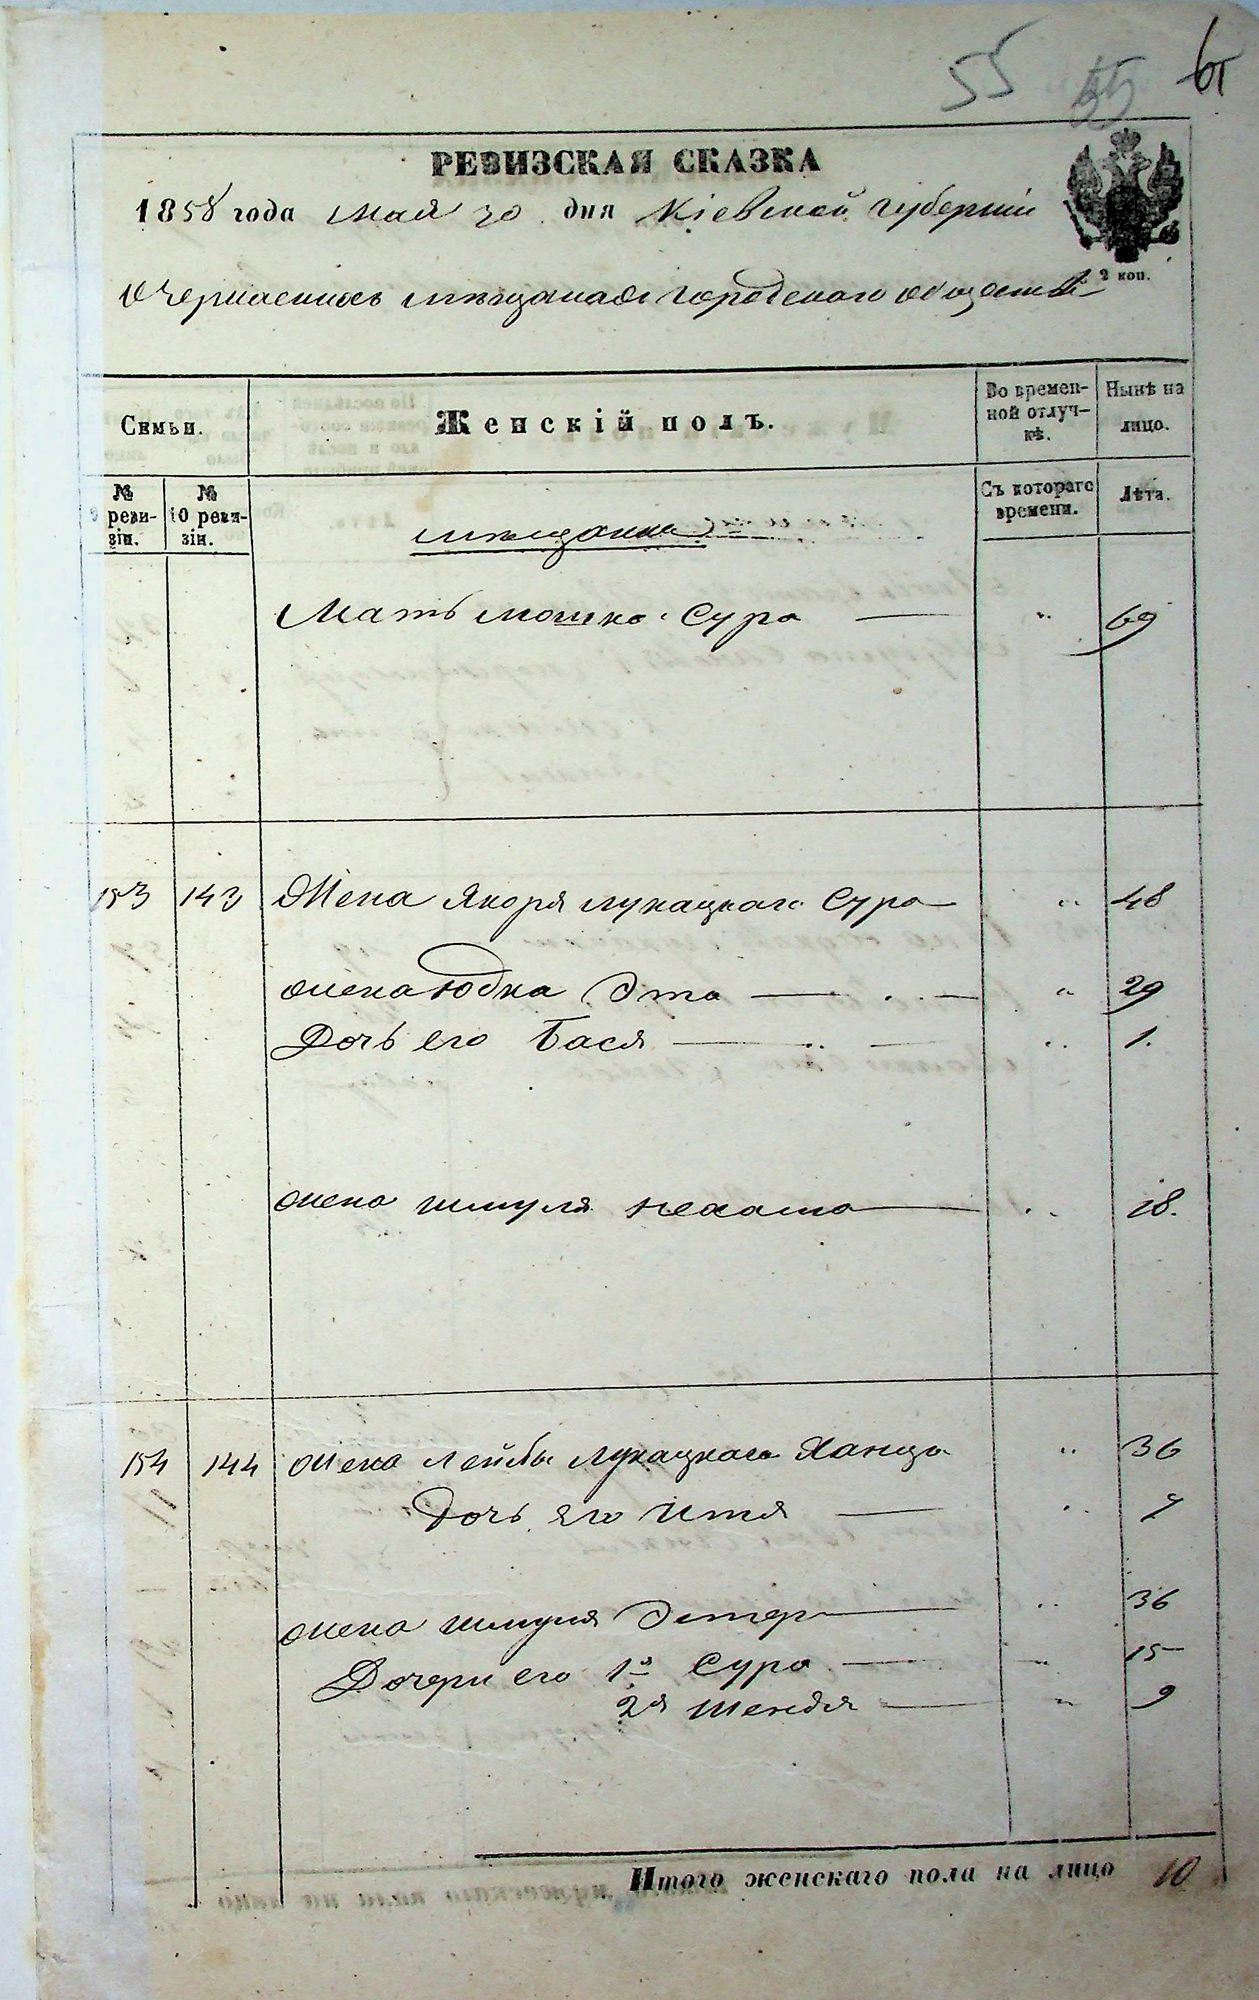 55 55 61
РЕВИЗСКАЯ СКАЗКА
1858 года мая 30 дня Кіевской губерніи
2 коп.
О Черкасскихъ мещанахъ городского общества
Семьи.
Женскій полъ.
Во времен-
ной отлуч-
кѣ.
Нынѣ на
лицо.
№
9 реви-
зіи.
№
10 реви-
зіи.
Съ котораго
времени.
Лѣта.
мещане
Мать Мошка Сура — " 69
153 143 Жена Якоря Лукацкаго Сура — " 48
жена Юдка Эта — " 29
Дочь его Бася — " 1.
жена Шмуля Нехама — " 18.
154 144 Жена Лейбы Лукацкаго Ханца " 36
Дочь его Итя — " 7
жена Шмуля Эстер — " 36
Дочери его 1я Сура — " 15
2я Шендя — " 9
Итого женскаго пола на лицо 10